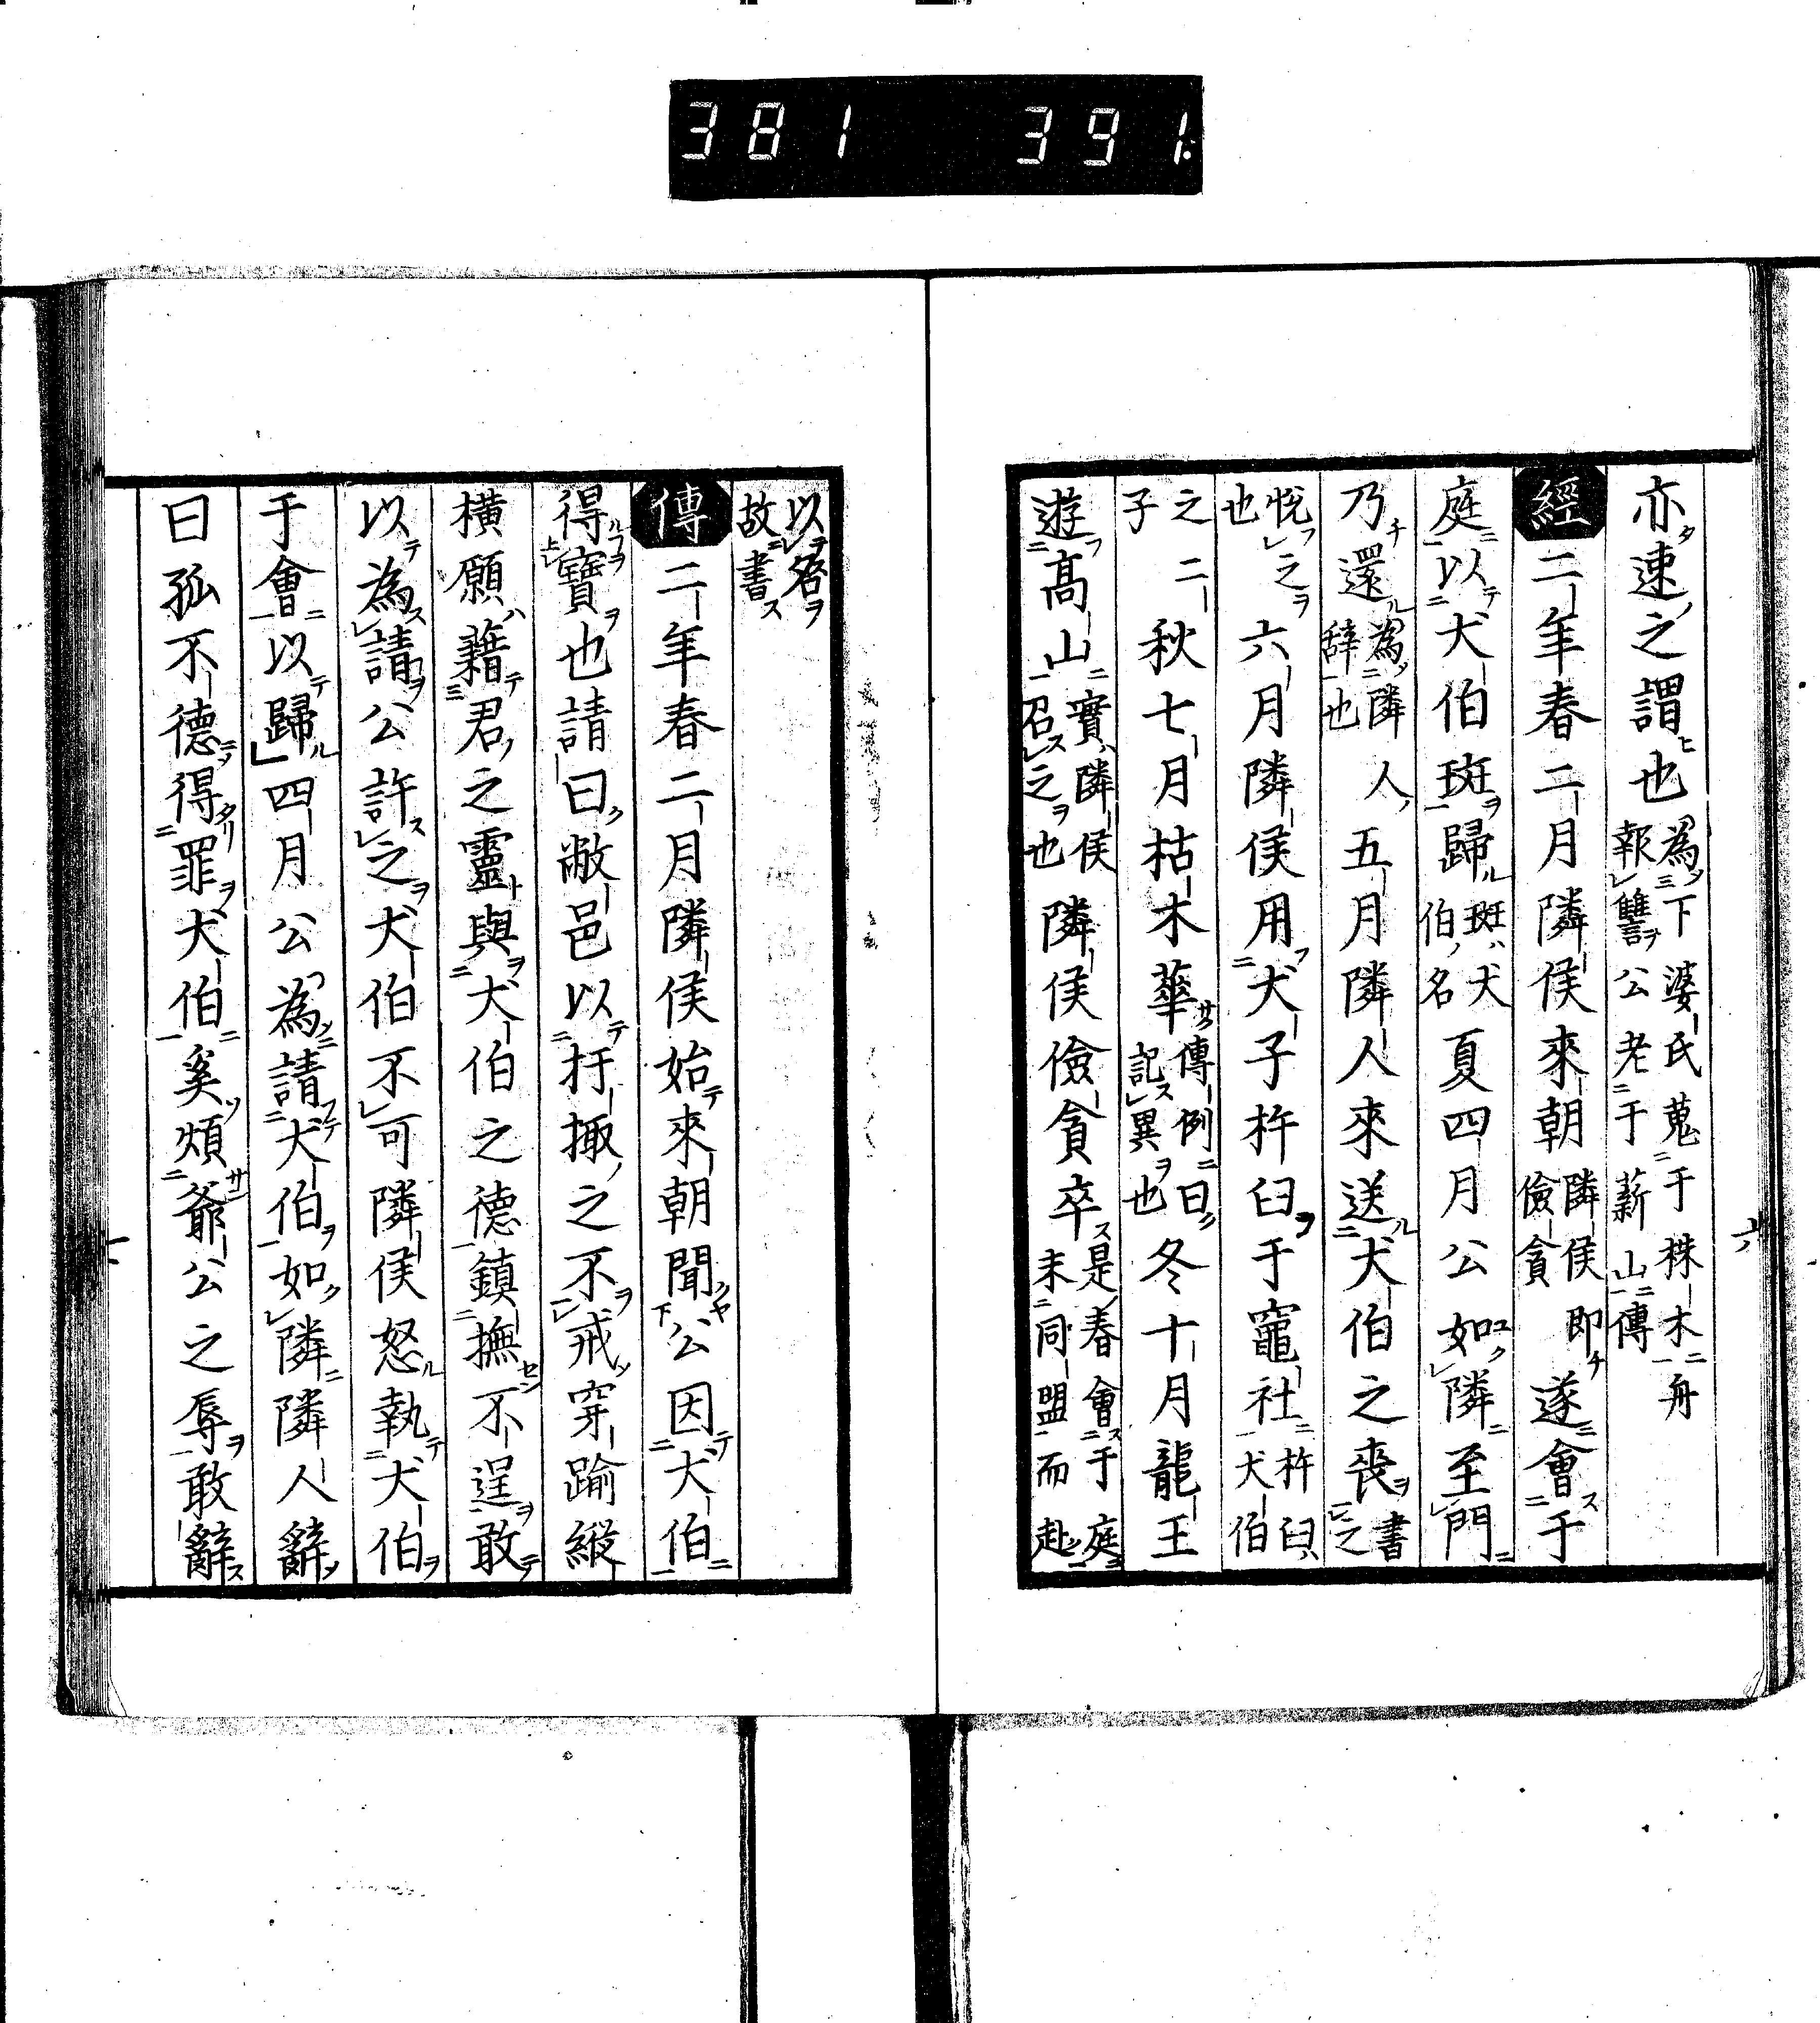 381 391
亦速之謂也為下婆氏蒐于株木舟報讐公老于薪山傳
經二年春二月隣侯來朝隣侯儉貪即遂會于
庭以犬伯斑歸斑犬伯名夏四月公如隣至門
乃還為隣人辞也五月隣人來送犬伯之喪書之
悅之也六月隣侯用犬子杵臼于竈社杵臼犬伯
之子二秋七月枯木華傳例曰記異也冬十月龍王
遊高山實隣侯召之也隣侯儉貪卒是春會于庭未同盟而赴
以名故書
傳二年春二月隣侯始來朝聞公因犬伯
得寶也請曰敝邑以扞掫之不戒穿踰縱
橫願藉君之靈與犬伯之德鎮撫不逞敢
以為請公許之犬伯不可隣侯怒執犬伯
于會以歸四月公為請犬伯如隣隣人辭
曰孤不德得罪犬伯奚煩爺公之辱敢辭